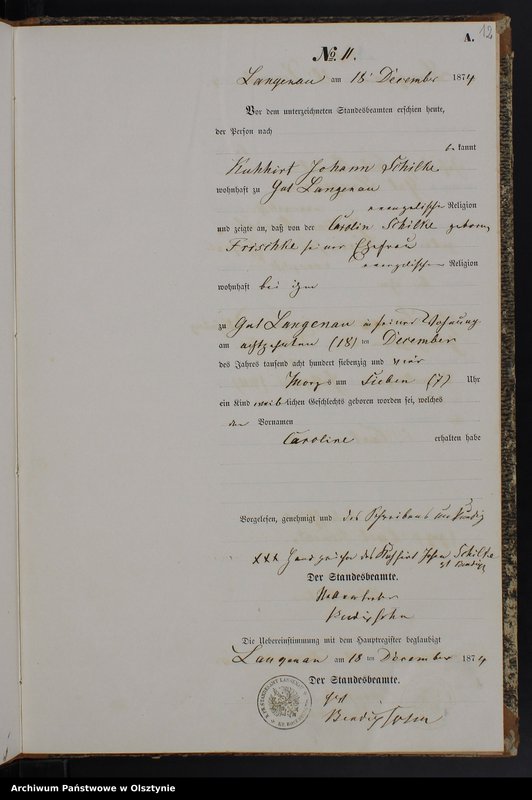 A.
12
No 11.
Langenau am 18 December 1874
Vor dem unterzeichneten Standesbeamten erschien heute,
der Person nach
be kannt
Kuhhirt Johann Schilke
wohnhaft zu Gut Langenau
evangelischer Religion
und zeigte an, daß von der Carolin Schilke geborene
Frischke seiner Ehefrau
evangelischer Religion
wohnhaft bei ihm
zu Gut Langenau in seiner Wohnung
am achtzehnten (18) ten December
des Jahres tausend acht hundert siebenzig und vier
Morgens um Sieben (7) Uhr
ein Kind weib lichen Geschlechts geboren worden sei, welches
den Vornamen
Caroline erhalten habe
Vorgelesen, genehmigt und des Schreibens unkundig
xxx Handzeichen des Kuhhirt Johann Schilke
Der Standesbeamte.
Die Uebereinstimmung mit dem Hauptregister beglaubigt
Langenau am 18 ten December 1874
Der Standesbeamte.
Archiwum Państwowe w Olsztynie